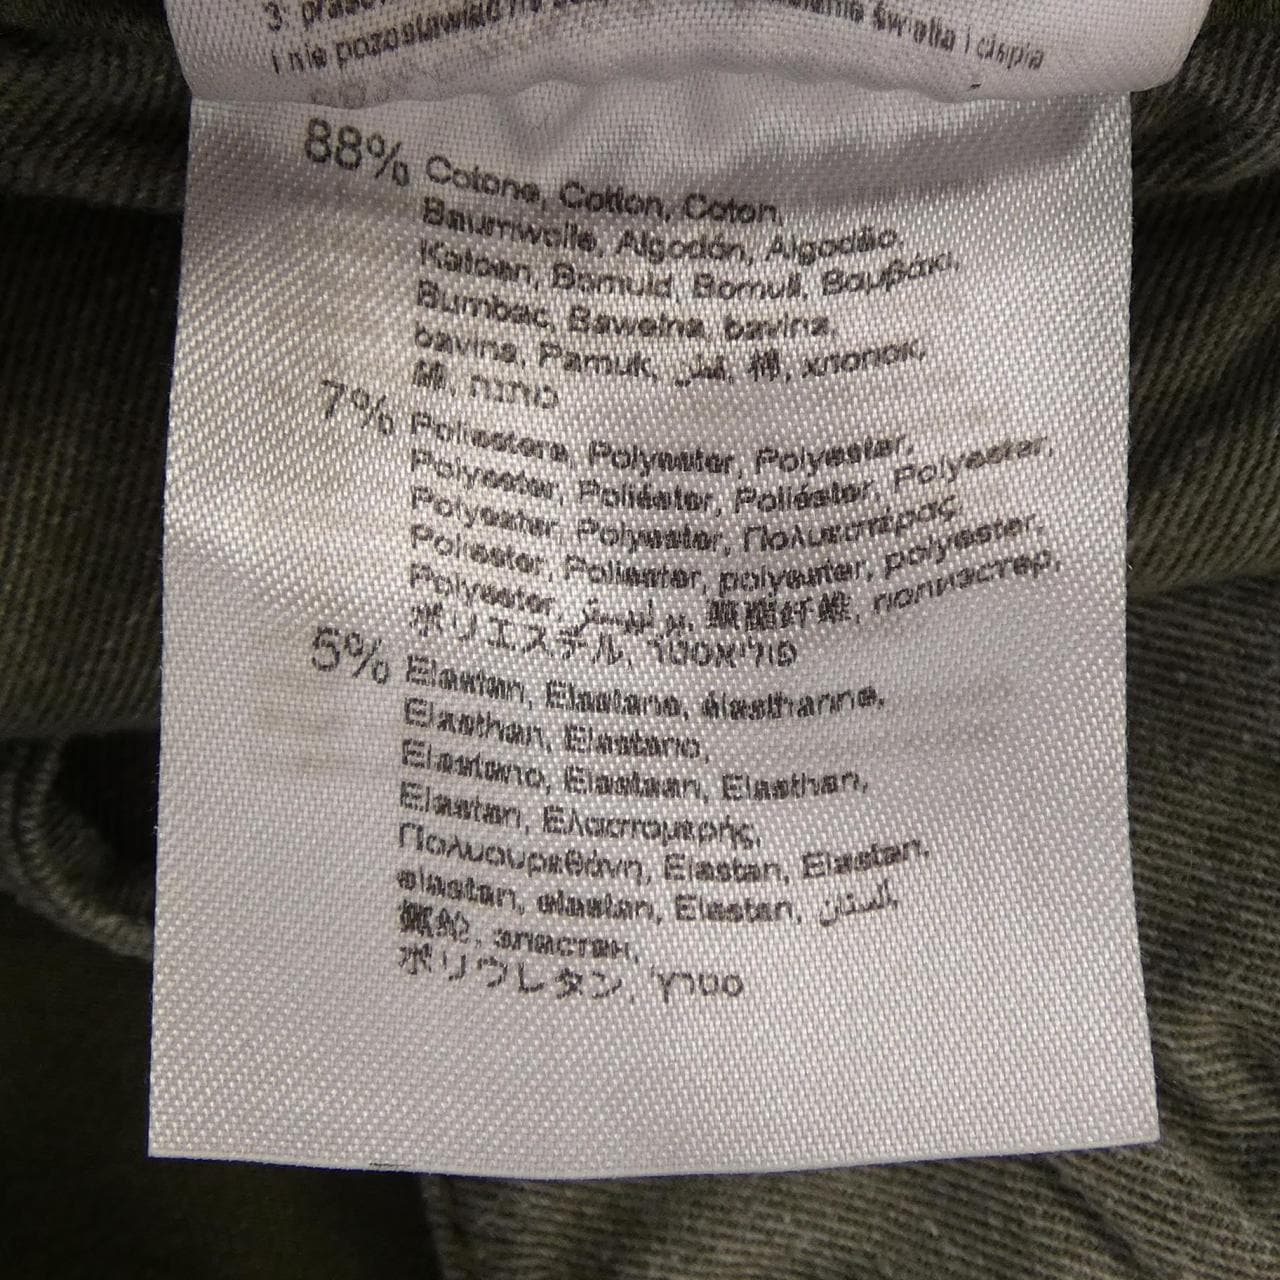 i nie pozostawiać światła i ciepła
88% Cotone, Cotton, Coton,
Baumwolle, Algodón, Algodão,
Katoen, Bomuld, Bomull, Βαμβάκι,
Bumbac, Bawełna, bavlna,
bavlna, Pamuk, قطن, 棉, хлопок,
綿, כותנה
7% Poliestere, Polyester, Polyester,
Polyester, Poliéster, Poliéster, Polyester,
Polyester, Polyester, Πολυεστέρας,
Poliester, Poliester, polyester, polyester,
Polyester, بوليستر, 聚酯纤维, полиэстер,
ポリエステル, פוליאסטר
5% Elastan, Elastane, élasthanne,
Elasthan, Elastano,
Elastano, Elastaan, Elasthan,
Elastan, Ελαστομερής,
Πολυουρεθάνη, Elastan, Elastan,
elastan, elastan, Elastan, الستان,
氨纶, эластан,
ポリウレタン, סטרץ'